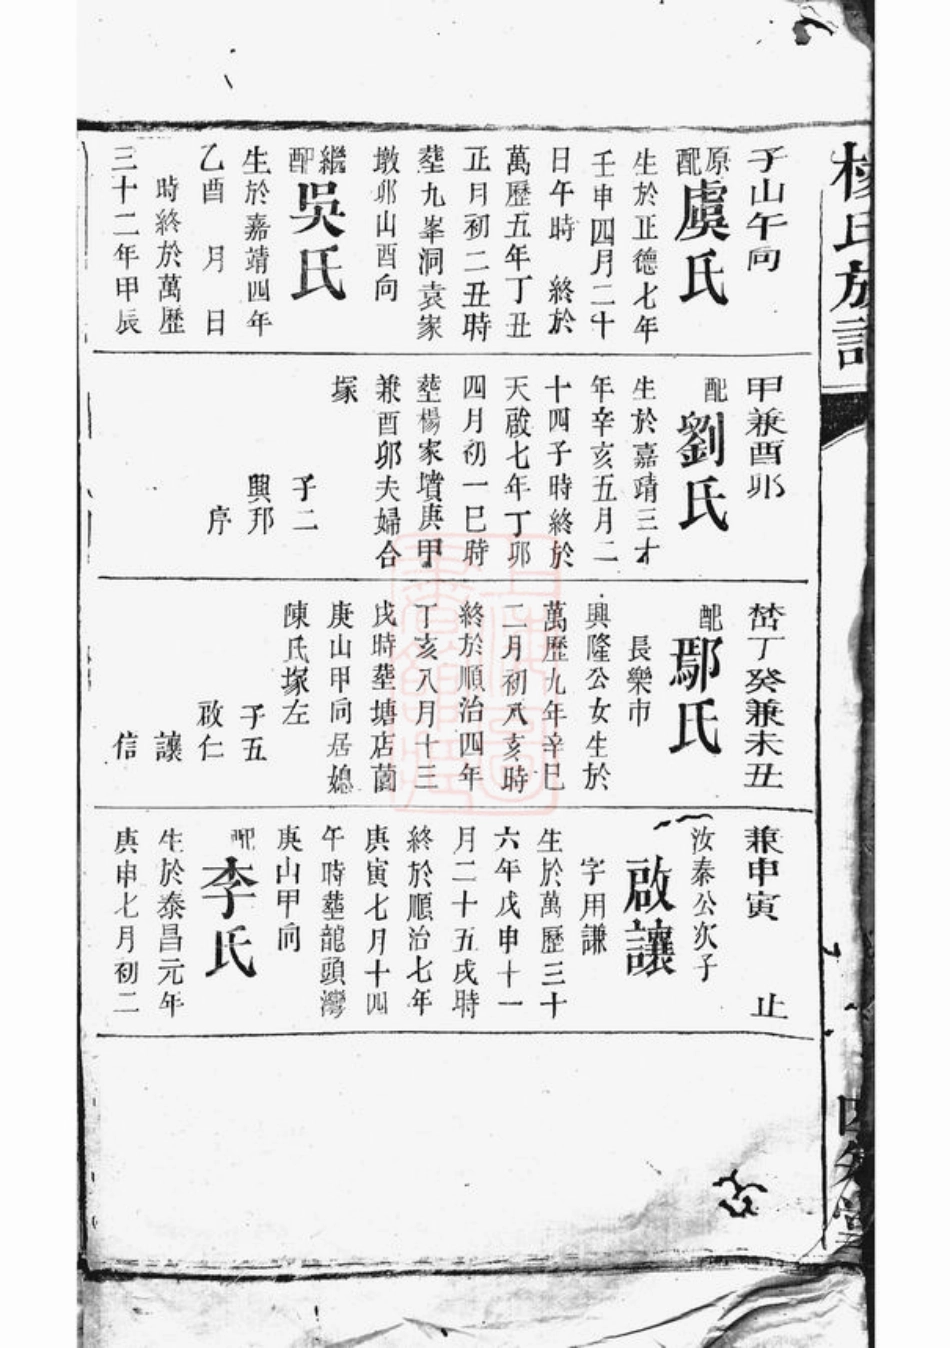 楊氏族譜
子山午向
原配虞氏
生於正德七年
壬申四月二十
日午時 終於
萬歷五年丁丑
正月初二丑時
塟九峯洞袁家
墩卯山酉向
繼配吳氏
生於嘉靖四年
乙酉 月 日
時終於萬歷
三十二年甲辰
甲兼酉卯
配劉氏
生於嘉靖三才
年辛亥五月二
十四子時終於
天啟七年丁卯
四月初一巳時
塟楊家墳庚甲
兼酉卯夫婦合
塚
子二
興邦
序
塋丁癸兼未丑
配鄢氏
長樂市
興隆公女生於
萬歷九年辛巳
二月初八亥時
終於順治四年
丁亥八月十三
戌時塟塘店薗
庚山甲向居媳
陳氏塚左
子五
啟仁
讓
信
兼申寅 止
汝泰公次子
啟讓
字用謙
生於萬歷三十
六年戊申十一
月二十五戌時
終於順治七年
庚寅七月十四
午時塟龍頭灣
庚山甲向
配李氏
生於泰昌元年
庚申七月初二
四知堂